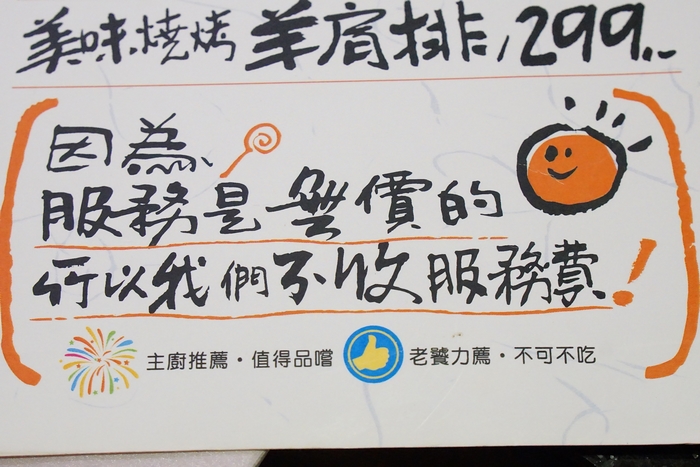 美味燒烤羊肩排/299..
因為、
服務是無價的
所以我們不收服務費!
主廚推薦・值得品嚐 老饕力薦・不可不吃